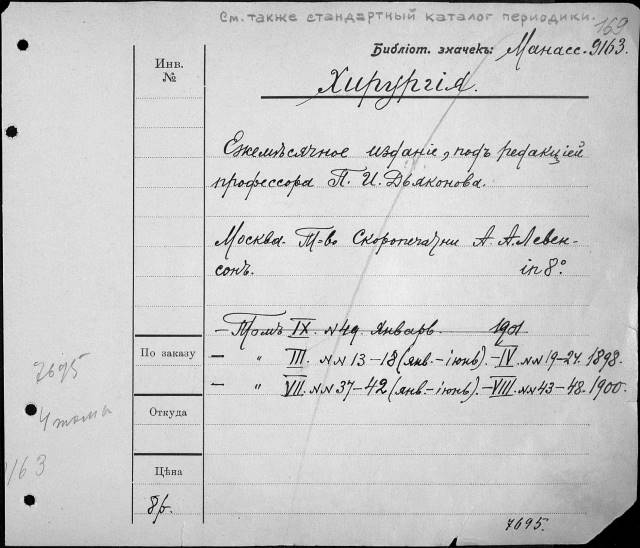 См. также стандартный каталог периодики.
169
Библіот. значекъ: Манасс. 9163.
Инв.
№
Хирургія.
Ежемѣсячное изданіе, подъ редакціей
профессора П. И. Дьяконова.
Москва. Т-во Скоропечатни А. А. Левен-
сонъ. in 8°.
— Томъ IX. №49. Январь. 1901
По заказу
— " III. №№ 13-18 (янв.-іюнь). -IV. №№ 19-24. 1898.
— " VII. №№ 37-42 (янв.-іюнь). -VIII. №№ 43-48. 1900.
7695
4 тома
9163
Откуда
Цѣна
8р.
7695.